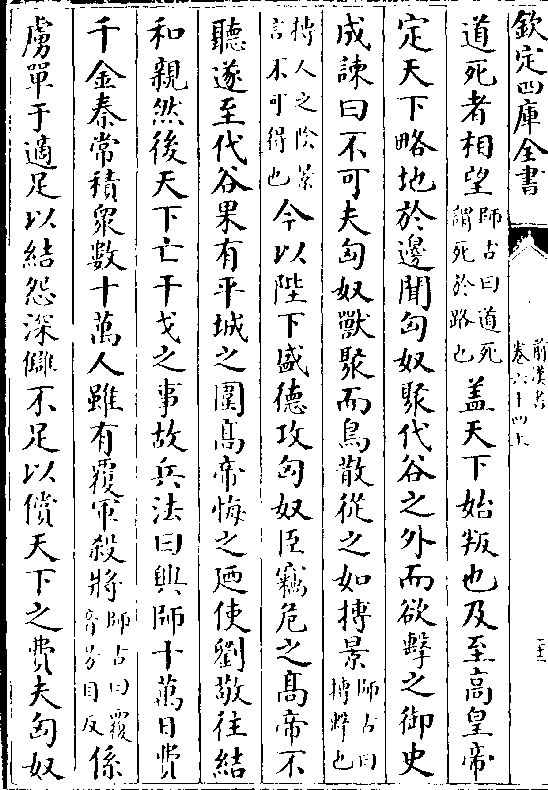 欽定四庫全書
前漢書
卷六十四上
道死者相望師古曰道死謂死於路也蓋天下始叛也及至高皇帝
定天下略地於邊聞匈奴聚代谷之外而欲擊之御史
成諫曰不可夫匈奴獸聚而鳥散從之如搏景師古曰搏擊也
搏人之隂景言不可得也今以陛下盛德攻匈奴臣竊危之髙帝不
聽遂至代谷果有平城之圍髙帝悔之廼使劉敬往結
和親然後天下亡干戈之事故兵法曰興師十萬日費
千金秦常積衆數十萬人雖有覆軍殺將師古曰覆音芳目反係
虜單于適足以結怨深讎不足以償天下之費夫匈奴